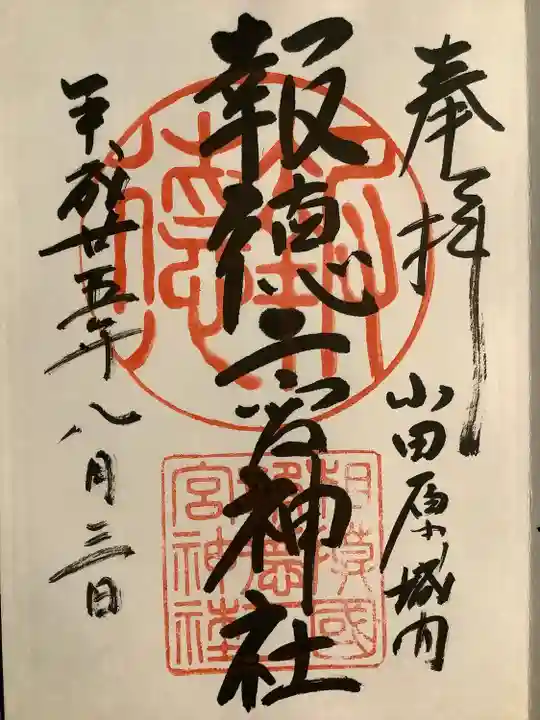 奉拝
小田原城内
報徳二宮神社
報徳
相模國
報徳二
宮神社
平成廿五年八月三日